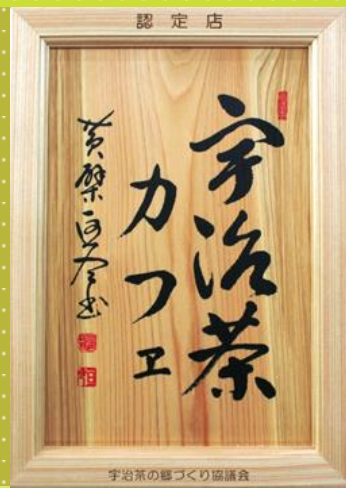 認定店
宇治茶
カフェ
黄檗
宇治茶の郷づくり協議会